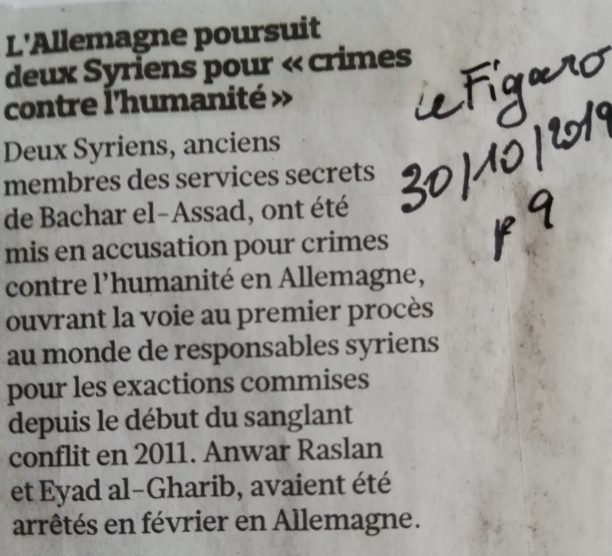 L'Allemagne poursuit
deux Syriens pour « crimes
contre l'humanité »
Deux Syriens, anciens
membres des services secrets
de Bachar el-Assad, ont été
mis en accusation pour crimes
contre l'humanité en Allemagne,
ouvrant la voie au premier procès
au monde de responsables syriens
pour les exactions commises
depuis le début du sanglant
conflit en 2011. Anwar Raslan
et Eyad al-Gharib, avaient été
arrêtés en février en Allemagne.
Le Figaro
30/10/2019
p 9